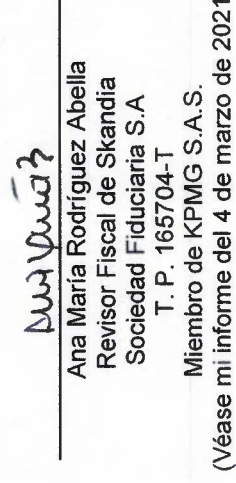 Ana María Rodríguez Abella
Revisor Fiscal de Skandia
Sociedad Fiduciaria S.A
T. P. 165704-T
Miembro de KPMG S.A.S.
(Véase mi informe del 4 de marzo de 2021